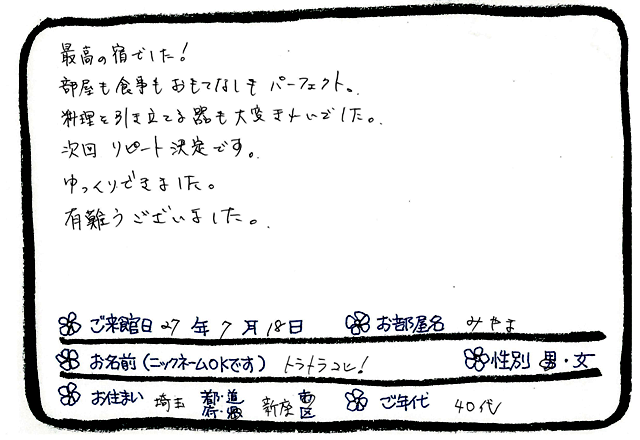 最高の宿でした！
部屋も食事もおもてなしも パーフェクト。
料理を引き立てる器も大変きれいでした。
次回 リピート決定です。
ゆっくりできました。
有難うございました。
ご来館日 27 年 7 月 18 日 お部屋名 みやま
お名前（ニックネームOKです） トラトラコヒ！ 性別 男・女
お住まい 埼玉 都・道 府・県 新座 市 区 ご年代 40代